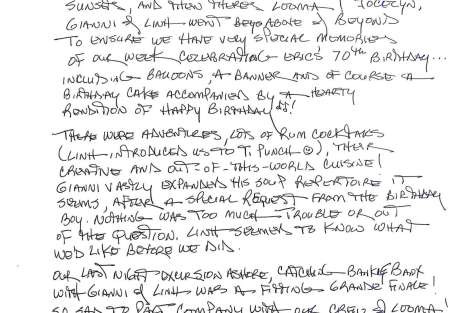 SUNSETS, AND THEN THERE'S LOOMA! JOCELYN,
GIANNI & LINH WENT BEYO ABOVE & BEYOND
TO ENSURE WE HAVE VERY SPECIAL MEMORIES
OF OUR WEEK CELEBRATING ERIC'S 70TH BIRTHDAY...
INCLUDING BALLOONS, A BANNER AND OF COURSE A
BIRTHDAY CAKE ACCOMPANIED BY A HEARTY
RENDITION OF HAPPY BIRTHDAY ♫!
THERE WERE ADVENTURES, LOTS OF RUM COCKTAILS
(LINH INTRODUCED US TO T. PUNCH ☺), THEIR
CREATIVE AND OUT-OF-THIS-WORLD CUISINE!
GIANNI VASTLY EXPANDED HIS SOUP REPERTOIRE IT
SEEMS, AFTER A SPECIAL REQUEST FROM THE BIRTHDAY
BOY. NOTHING WAS TOO MUCH TROUBLE OR OUT
OF THE QUESTION. LINH SEEMED TO KNOW WHAT
WE'D LIKE BEFORE WE DID.
OUR LAST NIGHT EXCURSION ASHORE, CATCHING BANKIE BANX
WITH GIANNI & LINH WAS A FITTING GRANDE FINALE!
SO SAD TO PART COMPANY WITH OUR CREW & LOOMA!